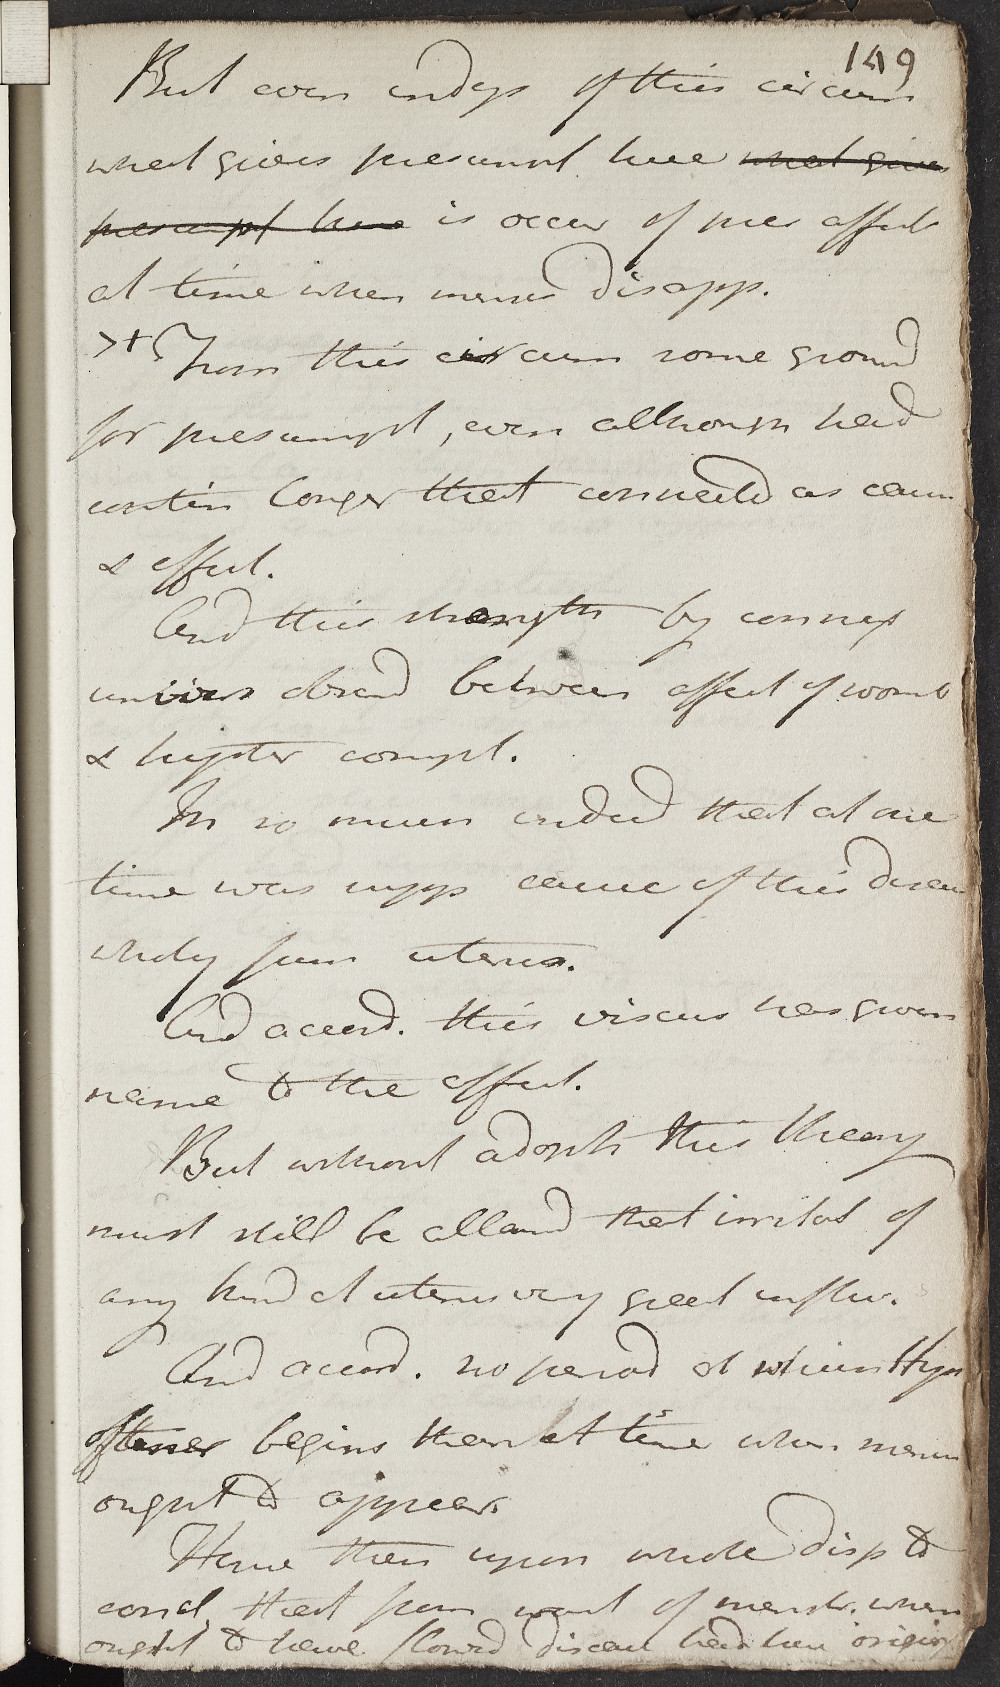 149
But even indep of this circum
what gives presumpt here what gives
presumpt here is occur of pres affect
at time when menses disapp.
>+ From this circum some ground
for presumpt, even although had
contin longer that connected as caus
& effect.
And this strength by connex
univers observd between affect of womb
& hyster compl.
In so much indeed that at one
time was supp cause of this diseas
wholy from uterus.
And accord. this viscus has given
name to the effect.
But without adopt this theory
must still be allowd that irritat of
any kind at uterus very great influ.
And accord. no period at which Hyst
oftener begins than at time when menses
ought to appear.
Hence then upon whole disp to
concl. that from want of menstr. when
ought to have flowd disease had here origin